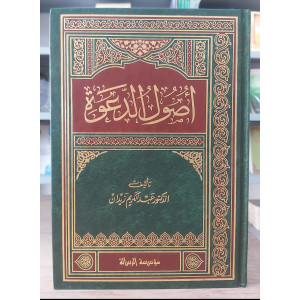 أصول الدعوة
تأليف
الدكتور عبد الكريم زيدان
مؤسسة الرسالة